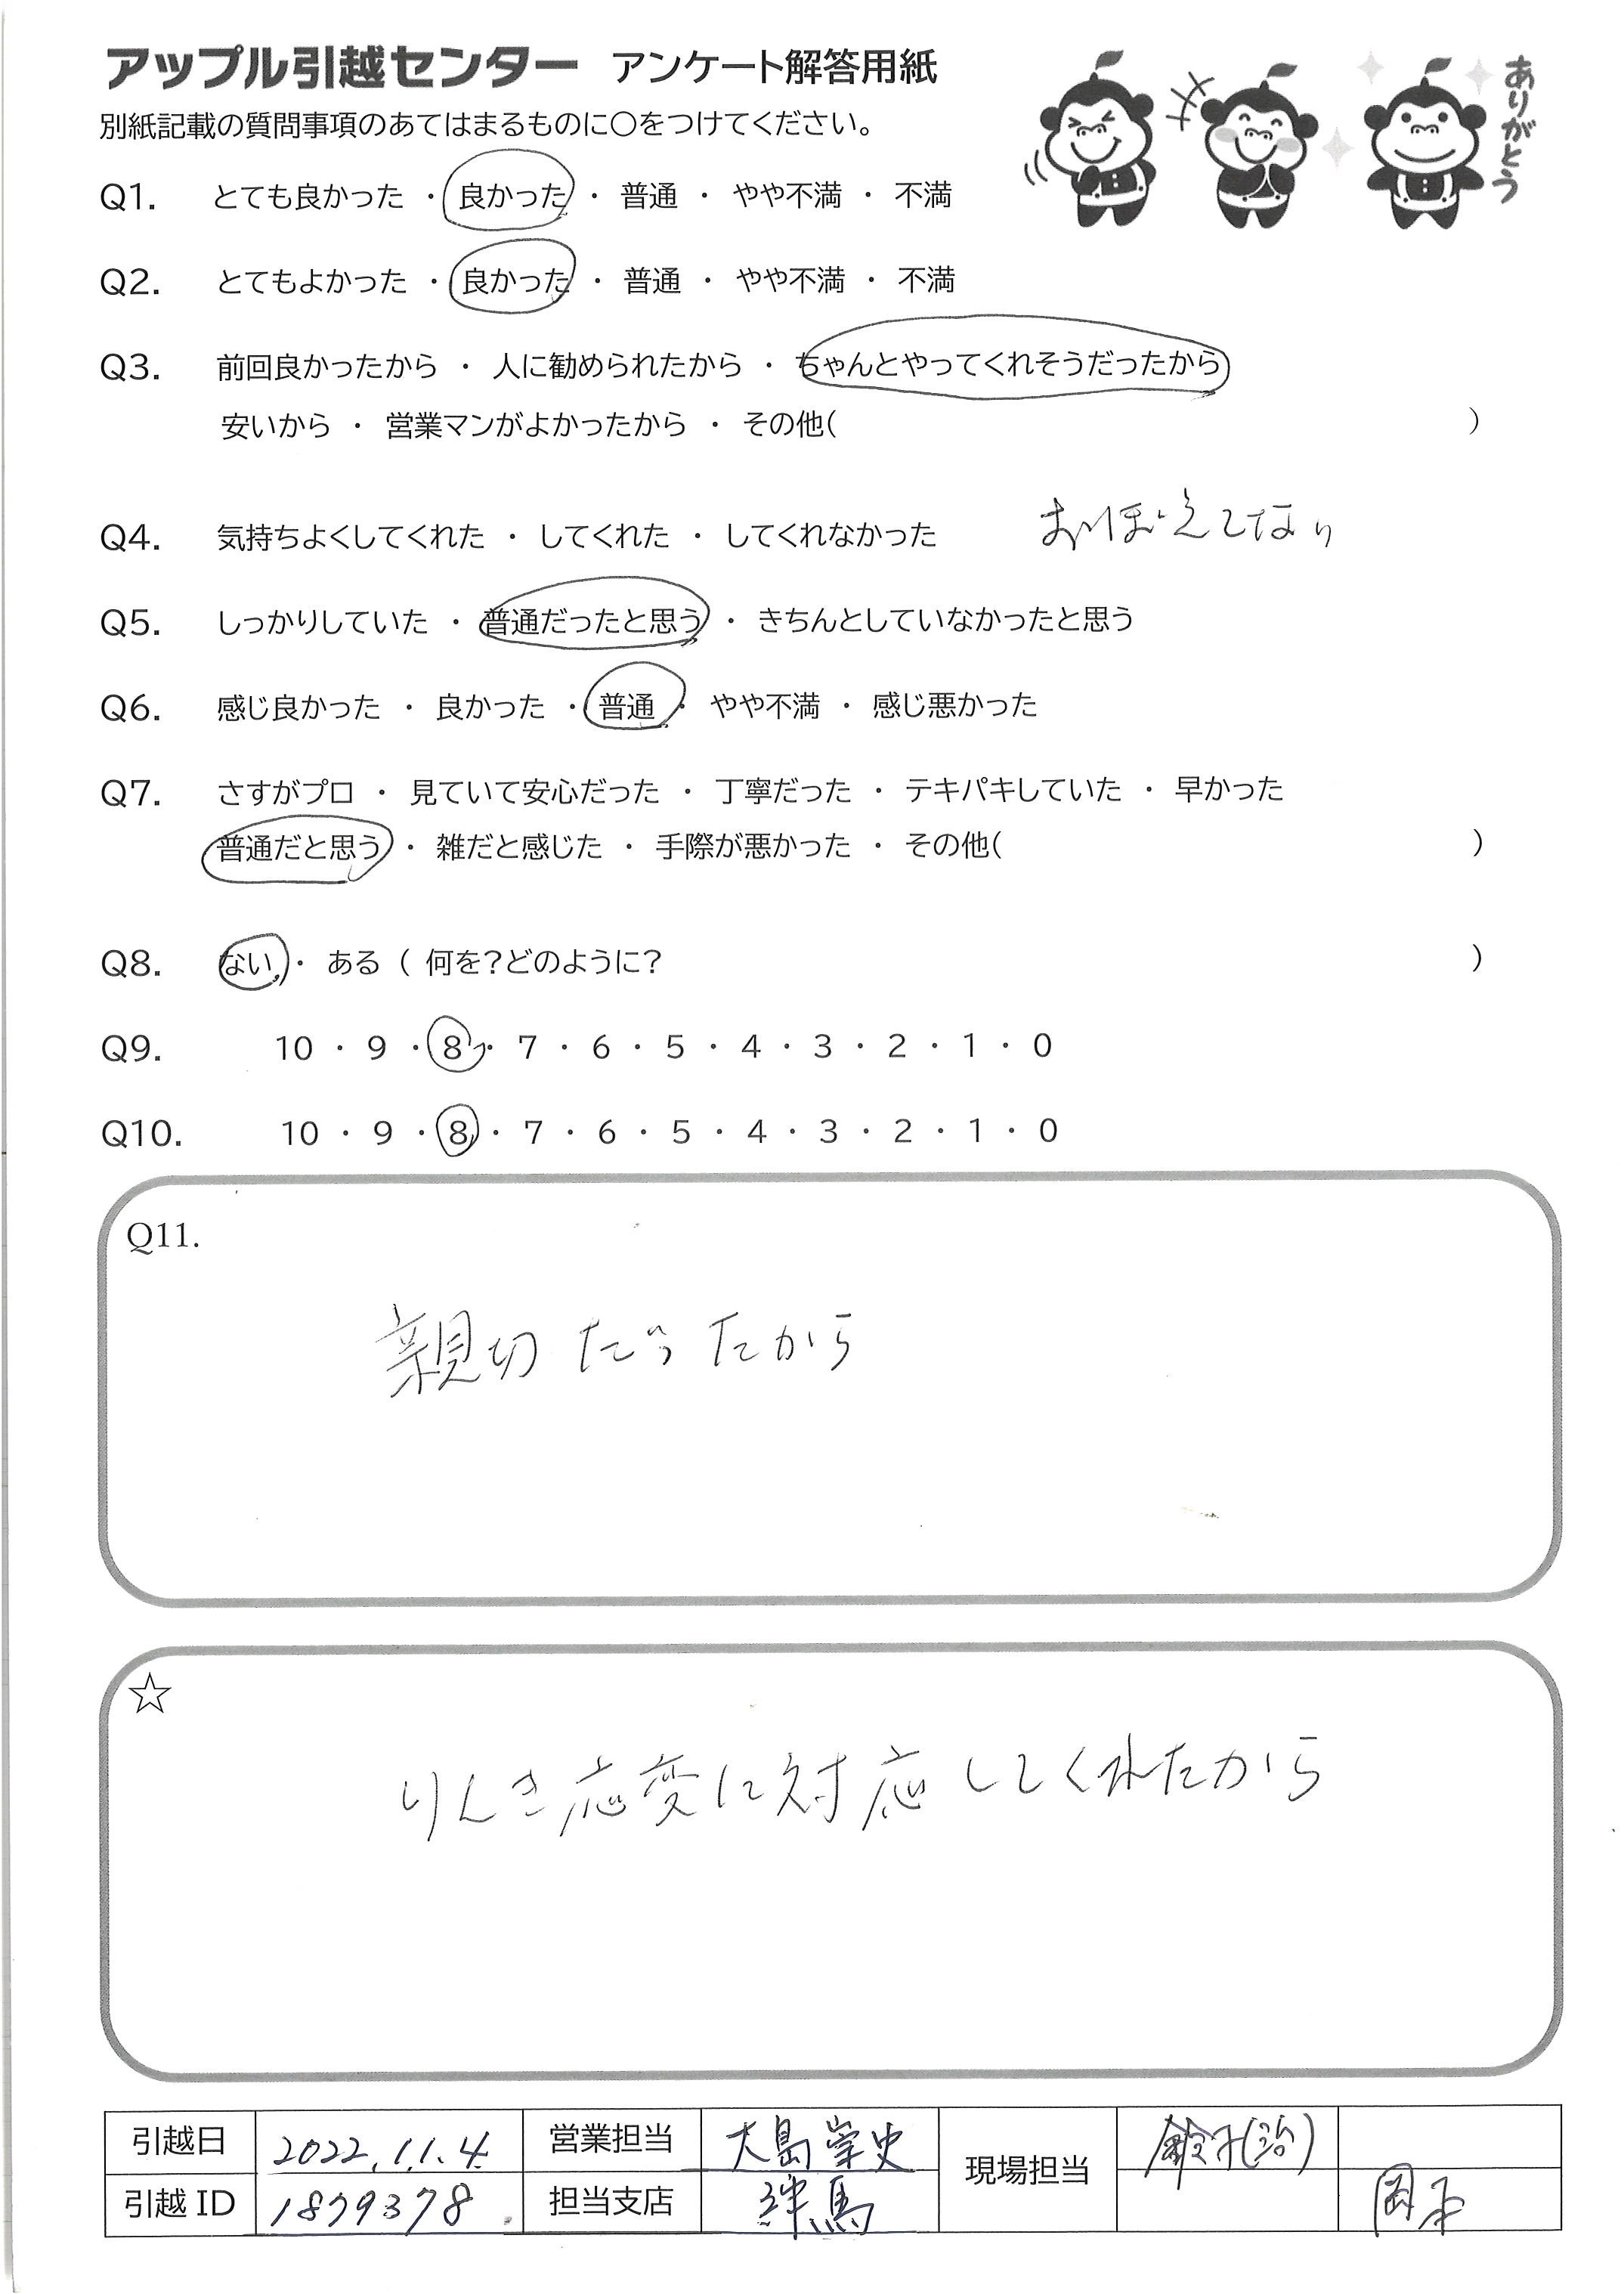 アップル引越センター アンケート解答用紙
ありがとう
別紙記載の質問事項のあてはまるものに○をつけてください。
Q1. とても良かった ・ 良かった ・ 普通 ・ やや不満 ・ 不満
Q2. とてもよかった ・ 良かった ・ 普通 ・ やや不満 ・ 不満
Q3. 前回良かったから ・ 人に勧められたから ・ ちゃんとやってくれそうだったから
安いから ・ 営業マンがよかったから ・ その他( )
Q4. 気持ちよくしてくれた ・ してくれた ・ してくれなかった おぼえてない
Q5. しっかりしていた ・ 普通だったと思う ・ きちんとしていなかったと思う
Q6. 感じ良かった ・ 良かった ・ 普通 ・ やや不満 ・ 感じ悪かった
Q7. さすがプロ ・ 見ていて安心だった ・ 丁寧だった ・ テキパキしていた ・ 早かった
普通だと思う ・ 雑だと感じた ・ 手際が悪かった ・ その他( )
Q8. ない ・ ある ( 何を?どのように? )
Q9. 10 ・ 9 ・ 8 ・ 7 ・ 6 ・ 5 ・ 4 ・ 3 ・ 2 ・ 1 ・ 0
Q10. 10 ・ 9 ・ 8 ・ 7 ・ 6 ・ 5 ・ 4 ・ 3 ・ 2 ・ 1 ・ 0
Q11.
親切だったから
☆
りんき応変に対応してくれたから
引越日 2022.11.4 営業担当 大島崇史 現場担当 鈴木(治)
引越ID 1879378 担当支店 練馬 岡本